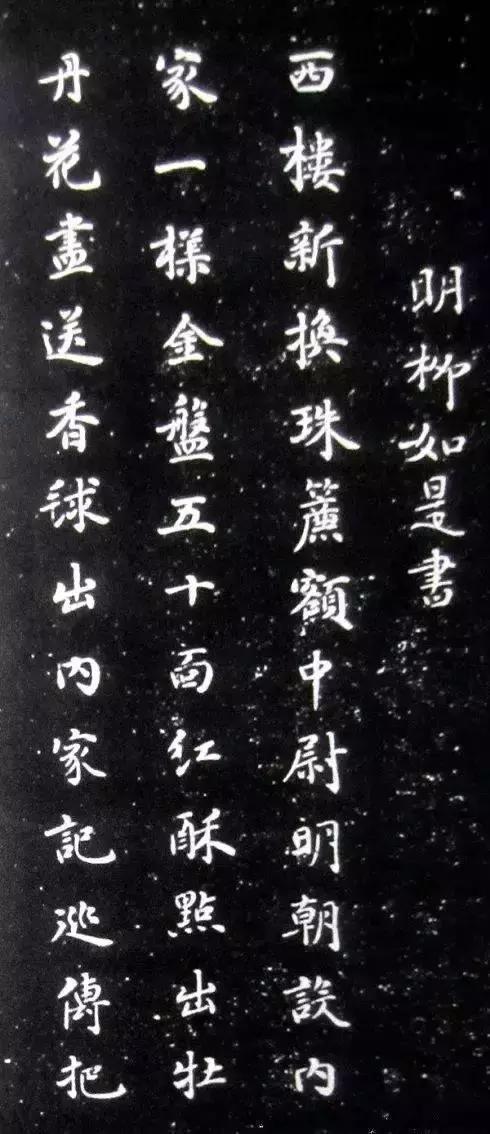 明柳如是書
西樓新換珠簾額中尉明朝設内
家一樣金盤五十面紅酥點出牡
丹花盡送香毬出内家記巡傳把